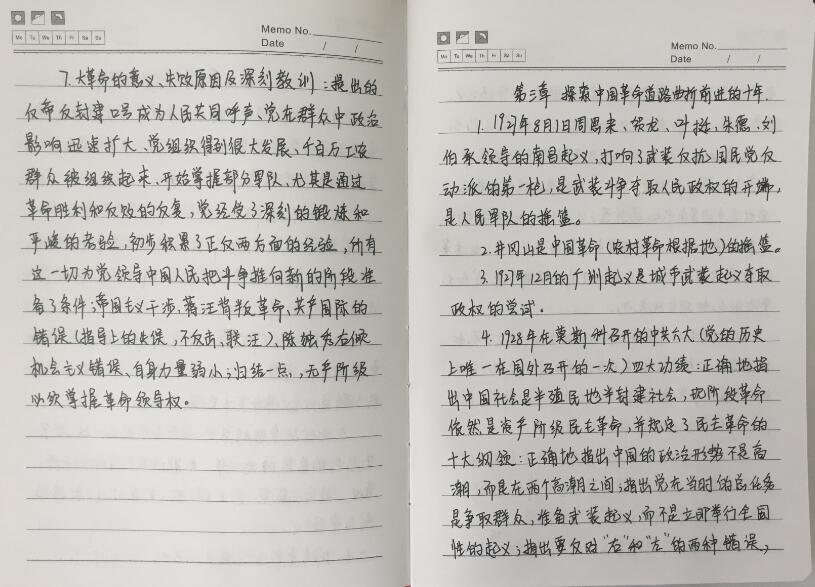 Mo Tu We Th Fr Sa Su
Memo No.
Date / /
7.大革命的意义、失败原因及深刻教训：提出的
反帝反封建口号成为人民共同呼声、党在群众中政治
影响迅速扩大、党组织得到很大发展、千百万工农
群众被组织起来、开始掌握部分军队、尤其是通过
革命胜利和反败的反复，党经受了深刻的锻炼和
严峻的考验，初步积累了正反两方面的经验，所有
这一切为党领导中国人民把斗争推向新的阶段准
备了条件；帝国主义干涉、蒋汪背叛革命、共产国际的
错误（指导上的失误，不反击、联汪）、陈独秀右倾
机会主义错误、自身力量弱小；归结一点，无产阶级
必须掌握革命领导权。
Mo Tu We Th Fr Sa Su
Memo No.
Date / /
第三章 探索中国革命道路曲折前进的十年.
1.1927年8月1日周恩来、贺龙、叶挺、朱德、刘
伯承领导的南昌起义，打响了武装反抗国民党反
动派的第一枪，是武装斗争夺取人民政权的开端，
是人民军队的摇篮。
2.井冈山是中国革命（农村革命根据地）的摇篮。
3.1927年12月的广州起义是城市武装起义夺取
政权的尝试.
4.1928年在莫斯科召开的中共六大（党的历史
上唯一在国外召开的一次）四大功绩：正确地指
出中国社会是半殖民地半封建社会，现阶段革命
依然是资产阶级民主革命，并规定了民主革命的
十大纲领；正确地指出中国的政治形势不是高
潮，而是在两个高潮之间；指出党在当时的总任务
是争取群众，准备武装起义，而不是立即举行全国
性的起义；指出要反对“右”和“左”的两种错误，